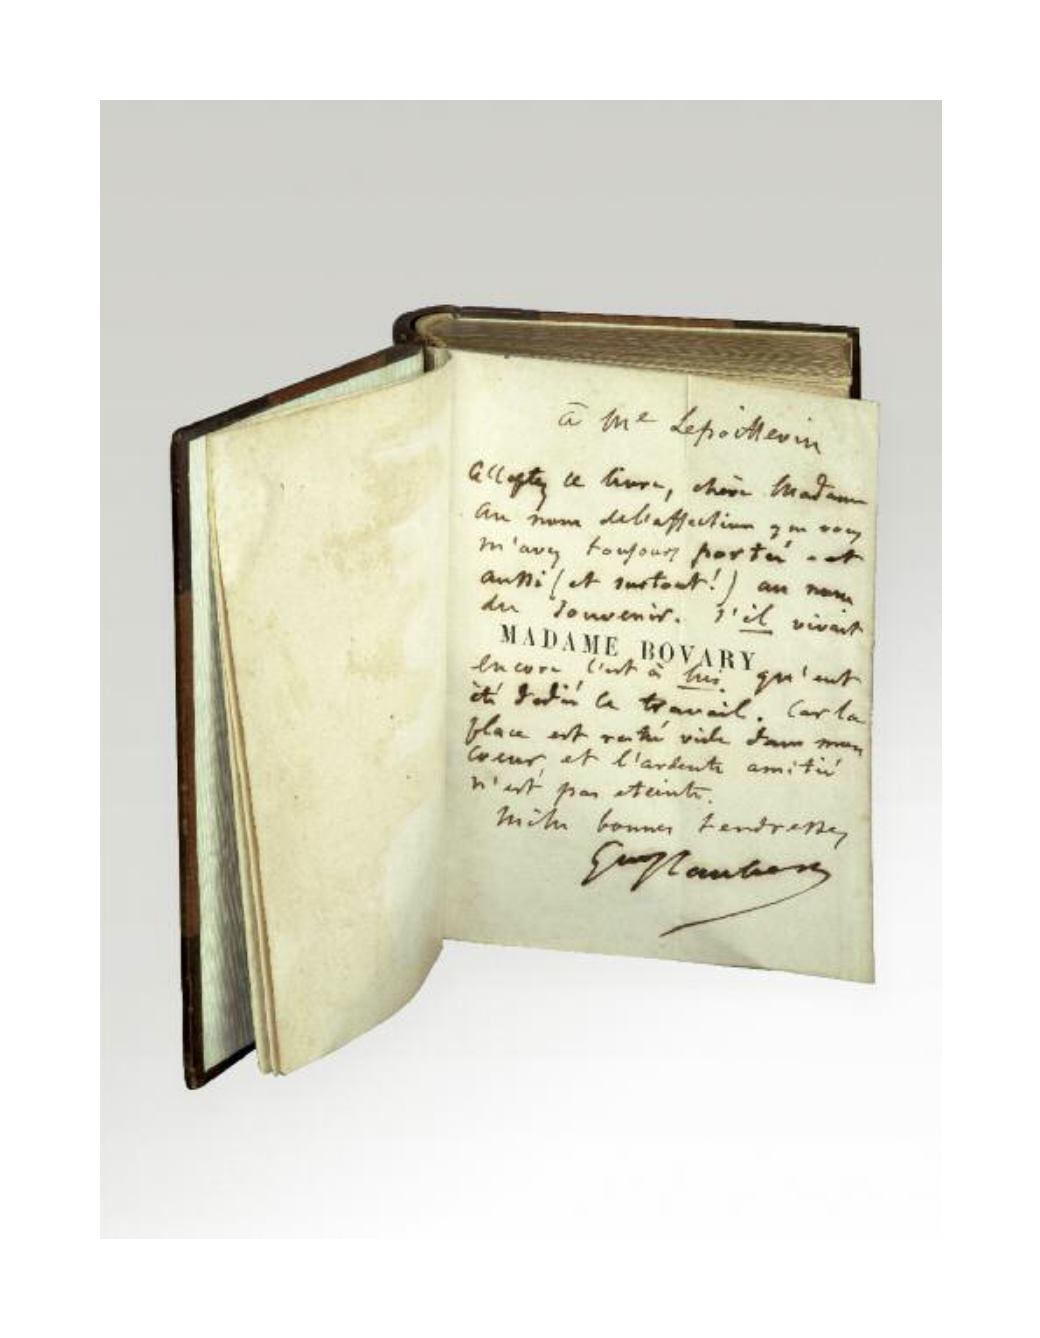 à Me Lepoittevin
Acceptez ce livre, chère Madame
au nom de l'affection que vous
m'avez toujours portée - et
aussi (et surtout!) au nom
du souvenir. S'il vivait
MADAME BOVARY
encore c'est à lui qu'eut
été dédié ce travail. Car la
place est restée vide dans mon
coeur et l'ardente amitié
n'est pas eteinte.
Mille bonnes tendresses
Gve Flaubert